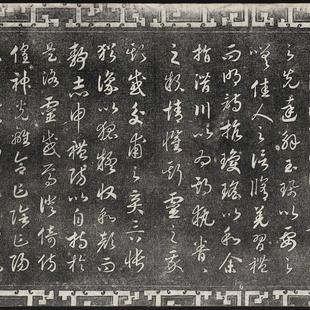 之先達解玉珮以要之
嗟佳人之信脩羌習禮
而明詩抗瓊珶以和余
指潛川以為期執眷眷
之款情懼斯靈之我
欺感交甫之棄言悵
猶豫以狐疑收和顏而
靜志申禮防以自持於
是洛靈感焉徙倚仿
偟神光離合乍陰乍陽